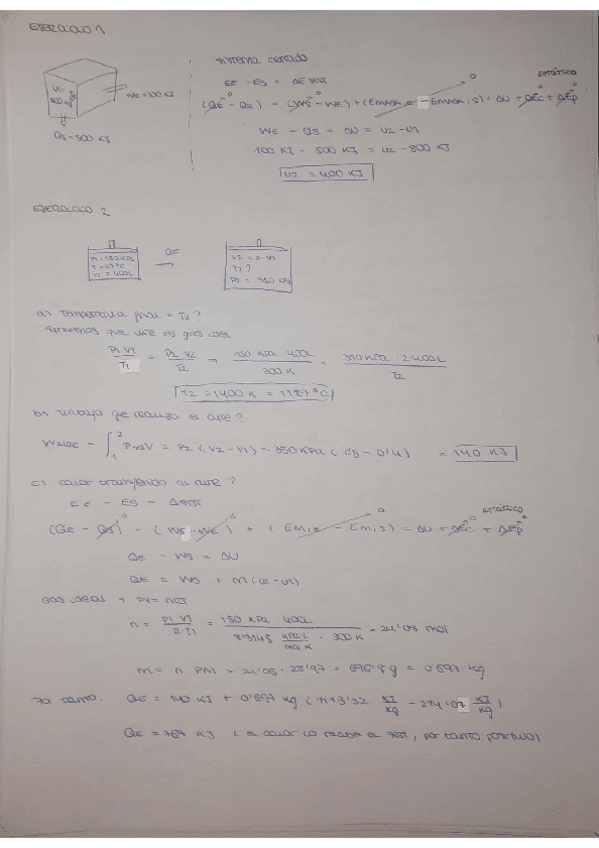 EJERCICIO 1
sistema cerrado
U1 = 800 KJ
WE = 100 KJ
QS = 500 KJ
EE - ES = ΔE SIST
estático
(QE - QS) - (WS - WE) + (EMASA,E - EMASA,S) = ΔU + ΔEC + ΔEP
WE - QS = ΔU = U2 - U1
100 KJ - 500 KJ = U2 - 800 KJ
U2 = 400 KJ
EJERCICIO 2
P1 = 150 KPa
T = 27ºC
V1 = 400L
QE
V2 = 2·V1
T2 ?
P2 = 350 KPa
a) Temperatura final = T2 ?
que aire es gas ideal
P1 V1 / T1 = P2 V2 / T2 → 150 KPa · 400L / 300 K = 350 KPa · 2·400L / T2
T2 = 1400 K = 1127ºC
b) trabajo que realiza el aire ?
= ∫₁² P·dV = P2 (V2 - V1) = 350 KPa (0'8 - 0'4) = 140 KJ
c) calor transferido al aire ?
EE - ES = ΔESIST
estático
(QE - QS) - (WS - WE) + (EM,E - EM,S) = ΔU + ΔEC + ΔEP
QE - WS = ΔU
QE = WS + M(U2 - U1)
Gas ideal → PV = nRT
n = P1 V1 / R·T1 = 150 KPa 400L / 8'3145 KPa·L / mol K · 300 K = 24'05 mol
m = n PM = 24'05 · 28'97 = 696'8 g = 0'697 kg
Por tanto: QE = 140 KJ + 0'697 kg (1113'52 KJ/kg - 214'07 KJ/kg)
QE = 767 KJ (el calor lo recibe el sist, por tanto positivo)